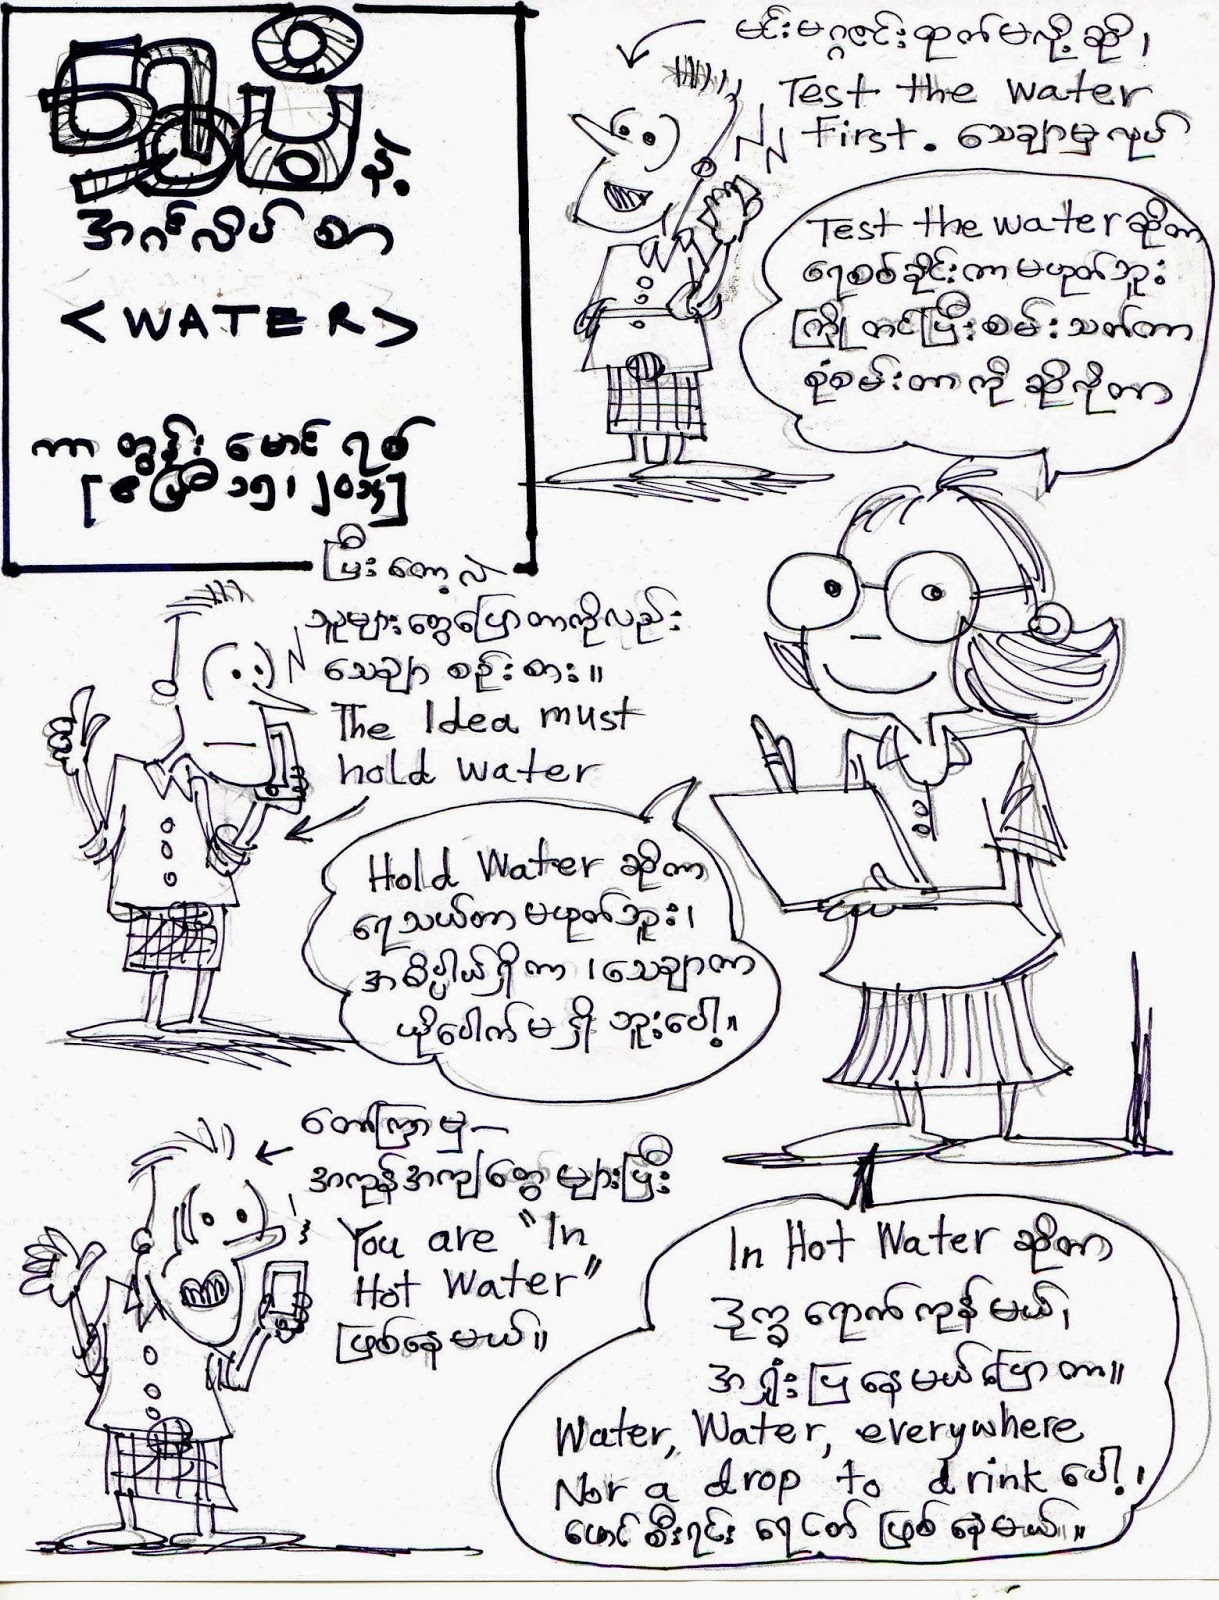 ကာတွန်းနဲ့
အင်္ဂလိပ် စာ
<WATER>
ကာတွန်း မောင်ရစ်
[ဧပြီ ၁၅၊ ၂၀၁၄]
မင်းမဂ္ဂဇင်းထုတ်မလို့ဆို၊
Test the water
First. သေချာမှလုပ်
Test the water ဆိုတာ
ရေစစ်ခိုင်းတာမဟုတ်ဘူး
ကြိုတင်ပြီးစမ်းသတ်တာ
စုံစမ်းတာကို ဆိုလိုတာ
ပြီးတော့လဲ
သူများတွေပြောတာကိုလည်း
သေချာ စဉ်းစား။
The Idea must
hold water
Hold Water ဆိုတာ
ရေသယ်တာမဟုတ်ဘူး၊
အဓိပ္ပါယ်ရှိတာ၊ သေချာတာ
ယိုပေါက်မရှိဘူးပေါ့။
တော်ကြာမှ—
အကုန်အကျတွေများပြီး
You are "In
Hot Water"
ဖြစ်နေမယ်။
In Hot Water ဆိုတာ
ဒုက္ခရောက်ကုန်မယ်၊
အရှုံးပြနေမယ်ပြောတာ။
Water, Water, everywhere
Nor a drop to drink ပေါ့၊
ဖောင်စီးရင်း ရေငတ် ဖြစ်နေမယ်။